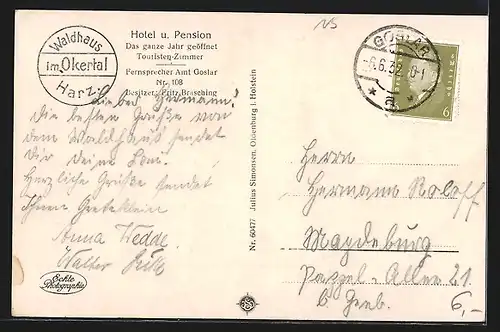 Waldhaus
im Okertal
Harz
Hotel u. Pension
Das ganze Jahr geöffnet
Touristen-Zimmer
Fernsprecher Amt Goslar
Nr. 108
Besitzer: Fritz Brasching
Lieber Hermann!
Die besten Grüße von
dem Waldhaus sendet
Dir deine
Herzliche Grüße sendet
Ihnen
Anna Wedde.
Walter
Echte
Photographie
Nr. 60477 Julius Simonsen, Oldenburg i. Holstein
GOSLAR
6.6.32. 0-1
* a *
6
Herrn
Hermann Roloff
Magdeburg
Allee 21
b. Greb.
6,-